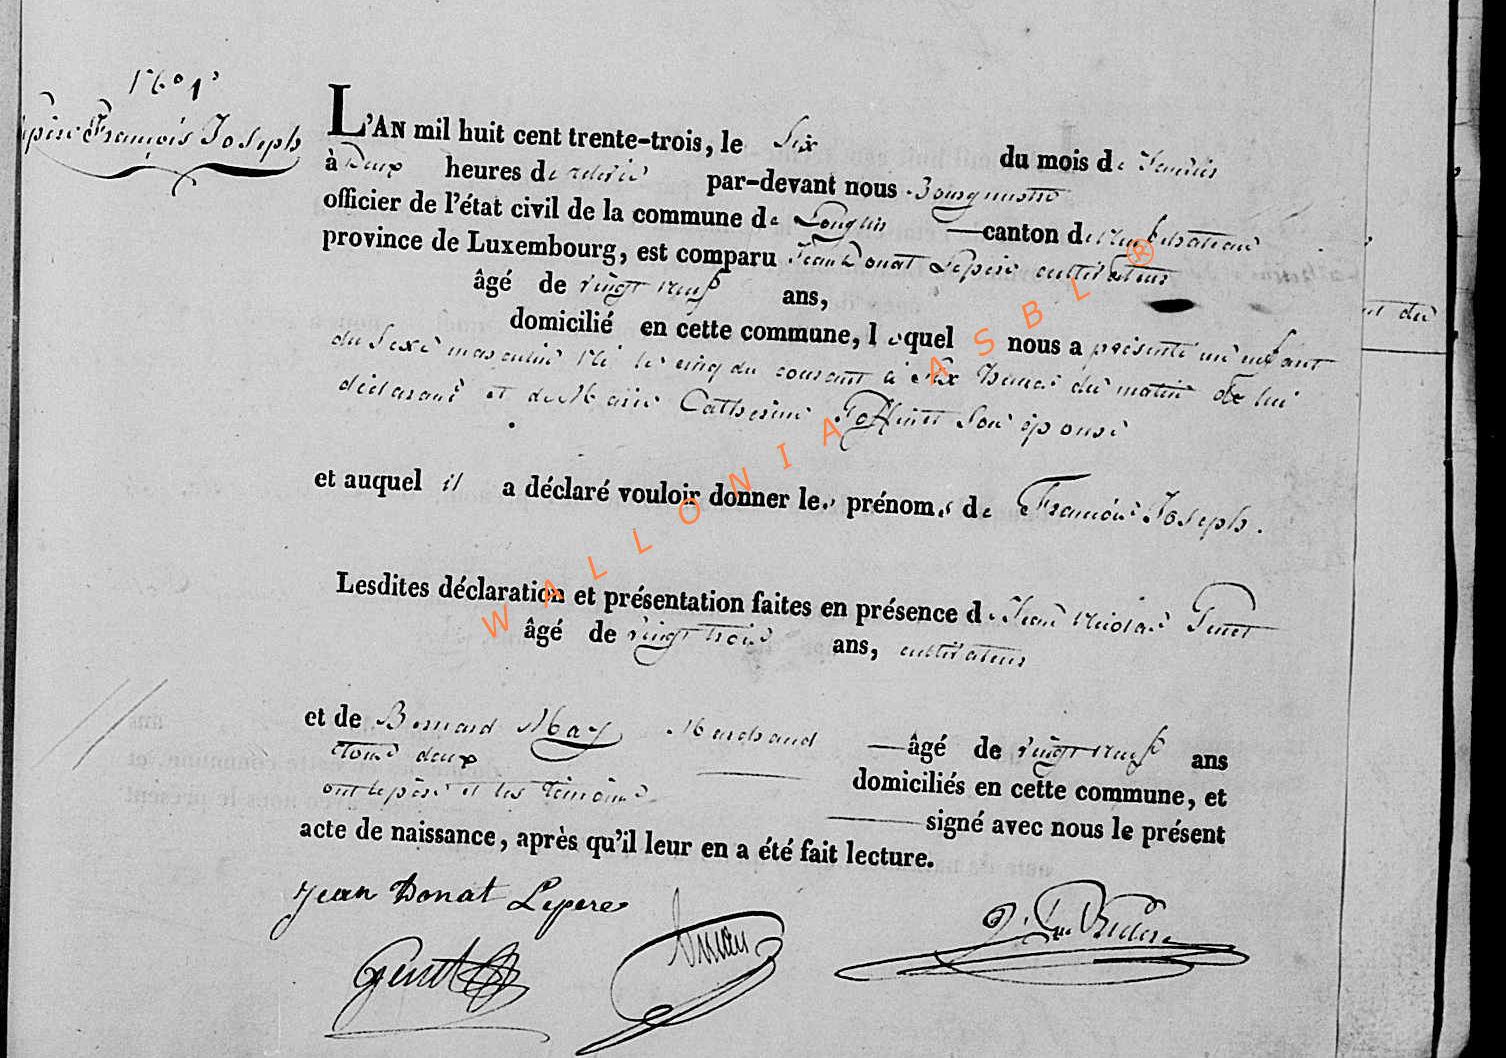 Lepère François Joseph
L'AN mil huit cent trente-trois, le Six du mois de Janvier
à Deux heures de relevée par-devant nous Bourgmestre
officier de l'état civil de la commune de Longlier canton de Neufchateau
province de Luxembourg, est comparu Jean Donat Lepère cultivateur
âgé de vingt neuf ans,
domicilié en cette commune, lequel nous a présenté un enfant
du Sexe masculin né le cinq du courant à Six heures du matin de lui
déclarant et de Marie Catherine Goffinet Son épouse
et auquel il a déclaré vouloir donner les prénoms de François Joseph.
Lesdites déclaration et présentation faites en présence de Jean Nicolas
âgé de vingt trois ans, cultivateur
et de Bernard May Marchand âgé de vingt neuf ans
tous deux domiciliés en cette commune, et
ont le père et les témoins signé avec nous le présent
acte de naissance, après qu'il leur en a été fait lecture.
Jean Donat Lepere
WALLONIA ASBL ®